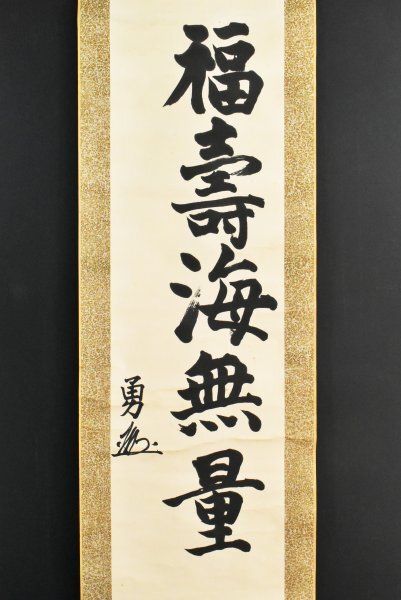 福壽海無量
勇